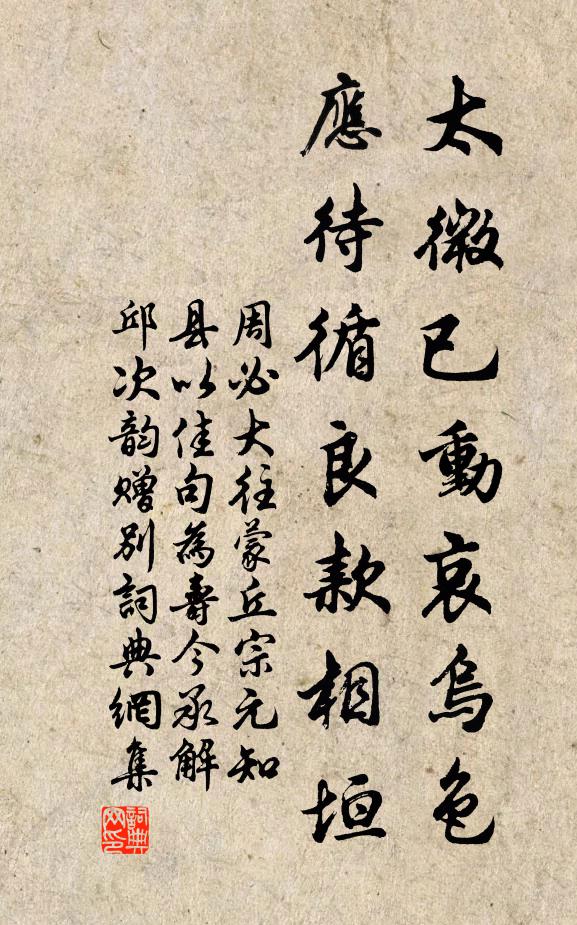 太微已動哀烏色
應待循良款相垣
周必大往蒙丘宗元知
县以佳句為壽今承解
邱次韵贈别詞典網集
詞典网印